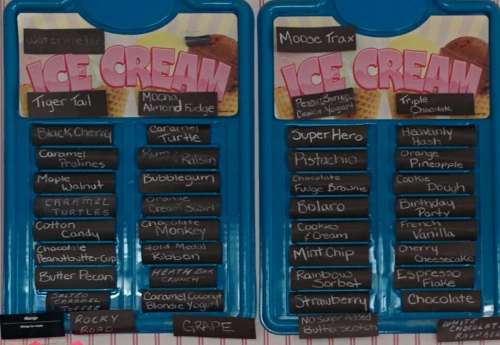 Watermelon
ICE CREAM
Tiger Tail
Mocha
Almond Fudge
Black Cherry
Caramel
Turtle
Caramel
Pralines
Rum
Raisin
Maple
Walnut
Bubblegum
CARAMEL
TURTLES
Orange
Cream Swirl
Cotton
Candy
Chocolate
Monkey
Chocolate
Peanutbutter Cup
Gold Medal
Ribbon
Butter Pecan
HEATH BAR
CRUNCH
SALTED
CARAMEL
Caramel Coconut
Blondie Yogurt
Mango
ROCKY
ROAD
GRAPE
Moose Trax
ICE CREAM
Triple
Chocolate
Super Hero
Heavenly
Hash
Pistachio
Orange
Pineapple
Chocolate
Fudge Brownie
Cookie
Dough
Bolaro
Birthday
Party
Cookies
& Cream
French
Vanilla
Mint Chip
Cherry
Cheesecake
Rainbow
Sorbet
Espresso
Flake
Strawberry
Chocolate
No Sugar Added
Butterscotch
WHITE
CHOCOLATE